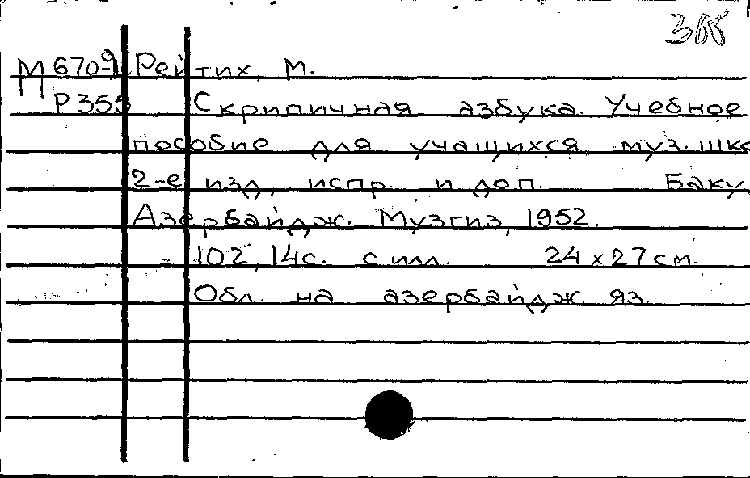 М 670-9 Рейтих, М.
Р355 Скрипичная азбука. Учебное
пособие для учащихся муз. шко
2-е изд., испр. и доп. Баку,
Азербайдж. Музгиз, 1952.
102, 14с. с илл. 24 х 27 см.
Обл. на азербайдж. яз.